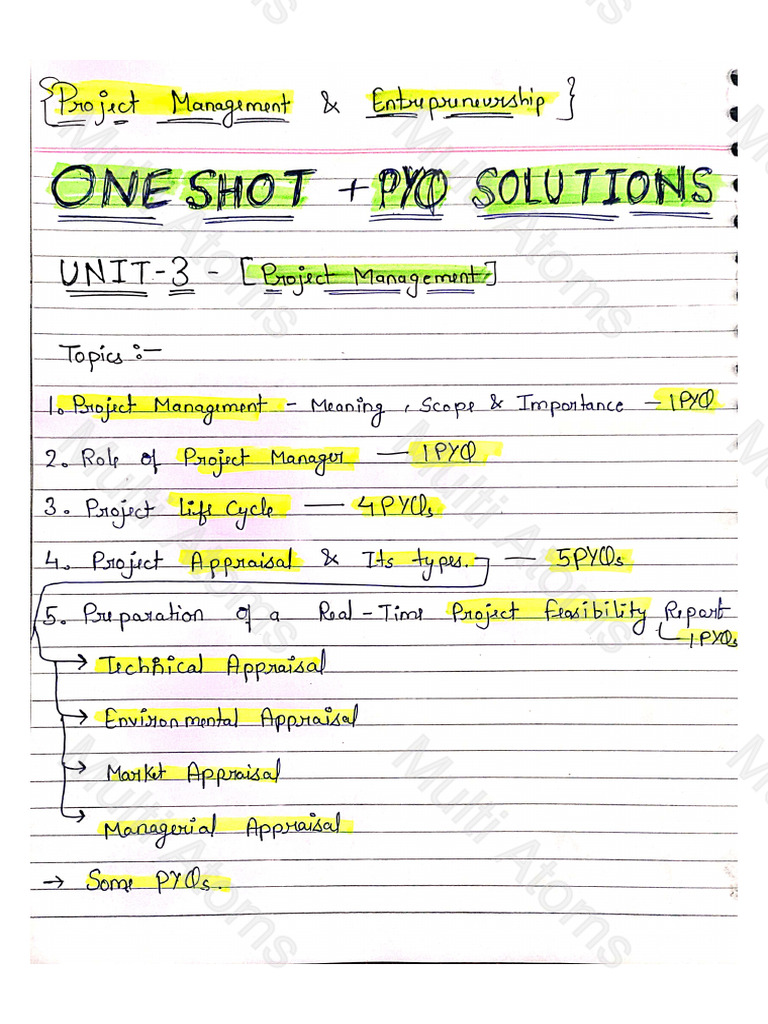 {Project Management & Entrepreneurship}
ONE SHOT + PYQ SOLUTIONS
UNIT-3 - [Project Management]
Topics :-
1. Project Management - Meaning, Scope & Importance - 1PYQ
2. Role of Project Manager - 1PYQ
3. Project Life Cycle - 4PYQs
4. Project Appraisal & Its types. - 5PYQs
5. Preparation of a Real-Time Project feasibility Report
1PYQs
→ Technical Appraisal
→ Environmental Appraisal
→ Market Appraisal
→ Managerial Appraisal
→ Some PYQs.
Multi Atoms